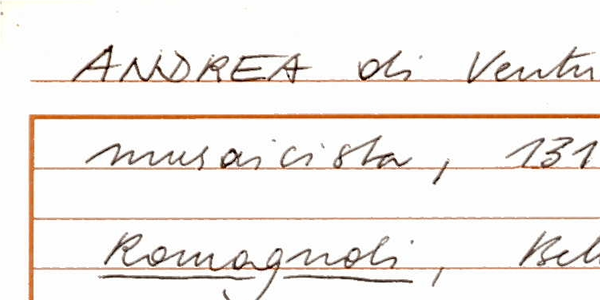 ANDREA di Ventu
musaicista, 131
Romagnoli, Bell